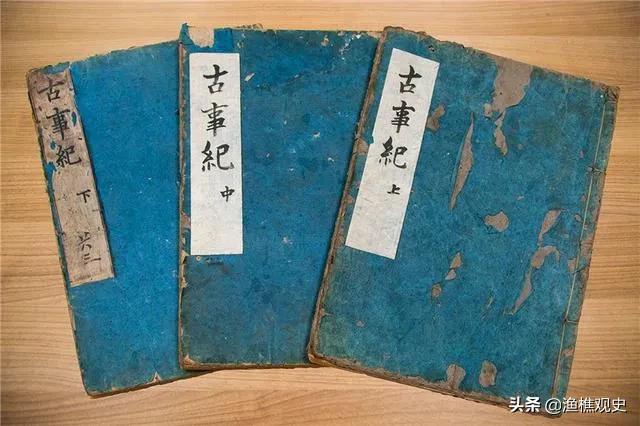 古事紀 上
古事紀 中
古事紀 下 共三
头条 @渔樵观史